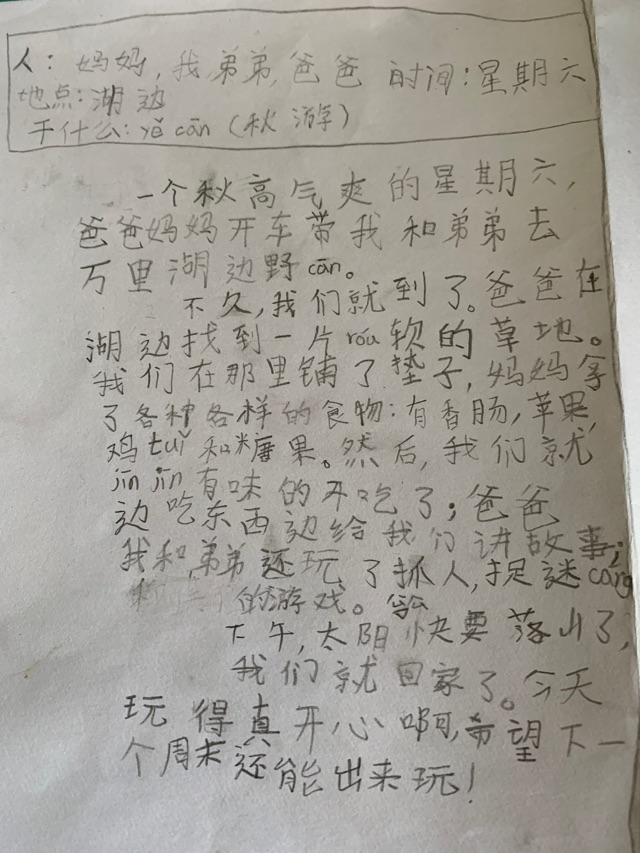 人：妈妈，我，弟弟，爸爸 时间：星期六
地点：湖边
干什么：yě cān（秋游）
一个秋高气爽的星期六，
爸爸妈妈开车带我和弟弟去
万里湖边野cān。
不久，我们就到了。爸爸在
湖边找到一片róu软的草地。
我们在那里铺了垫子，妈妈拿
了各种各样的食物：有香肠，苹果，
鸡tuǐ和糖果。然后，我们就
jīn jīn有味的开吃了；爸爸
边吃东西边给我们讲故事；
我和弟弟还玩了抓人，捉谜cáng
的游戏。
下午，太阳快要落山了，
我们就回家了。今天
玩得真开心啊，希望下一
个周末还能出来玩！